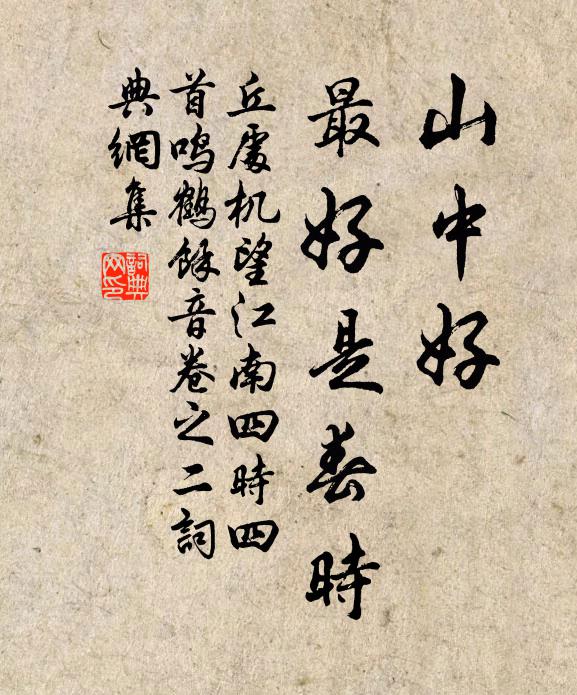 山中好
最好是春時
丘處机望江南四時四
首鳴鶴餘音卷之二詞
典網集
詞典網印